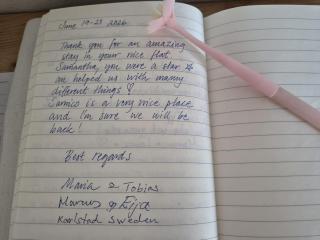 June 19-23 2026
Thank you for an amazing
stay in your nice flat
Samantha, you were a star ☆
an helped us with many
different things!
Sarnico is a very nice place
and I'm sure we will be
back!
Best regards
Maria & Tobias
Marcus & Eija
Karlstad Sweden